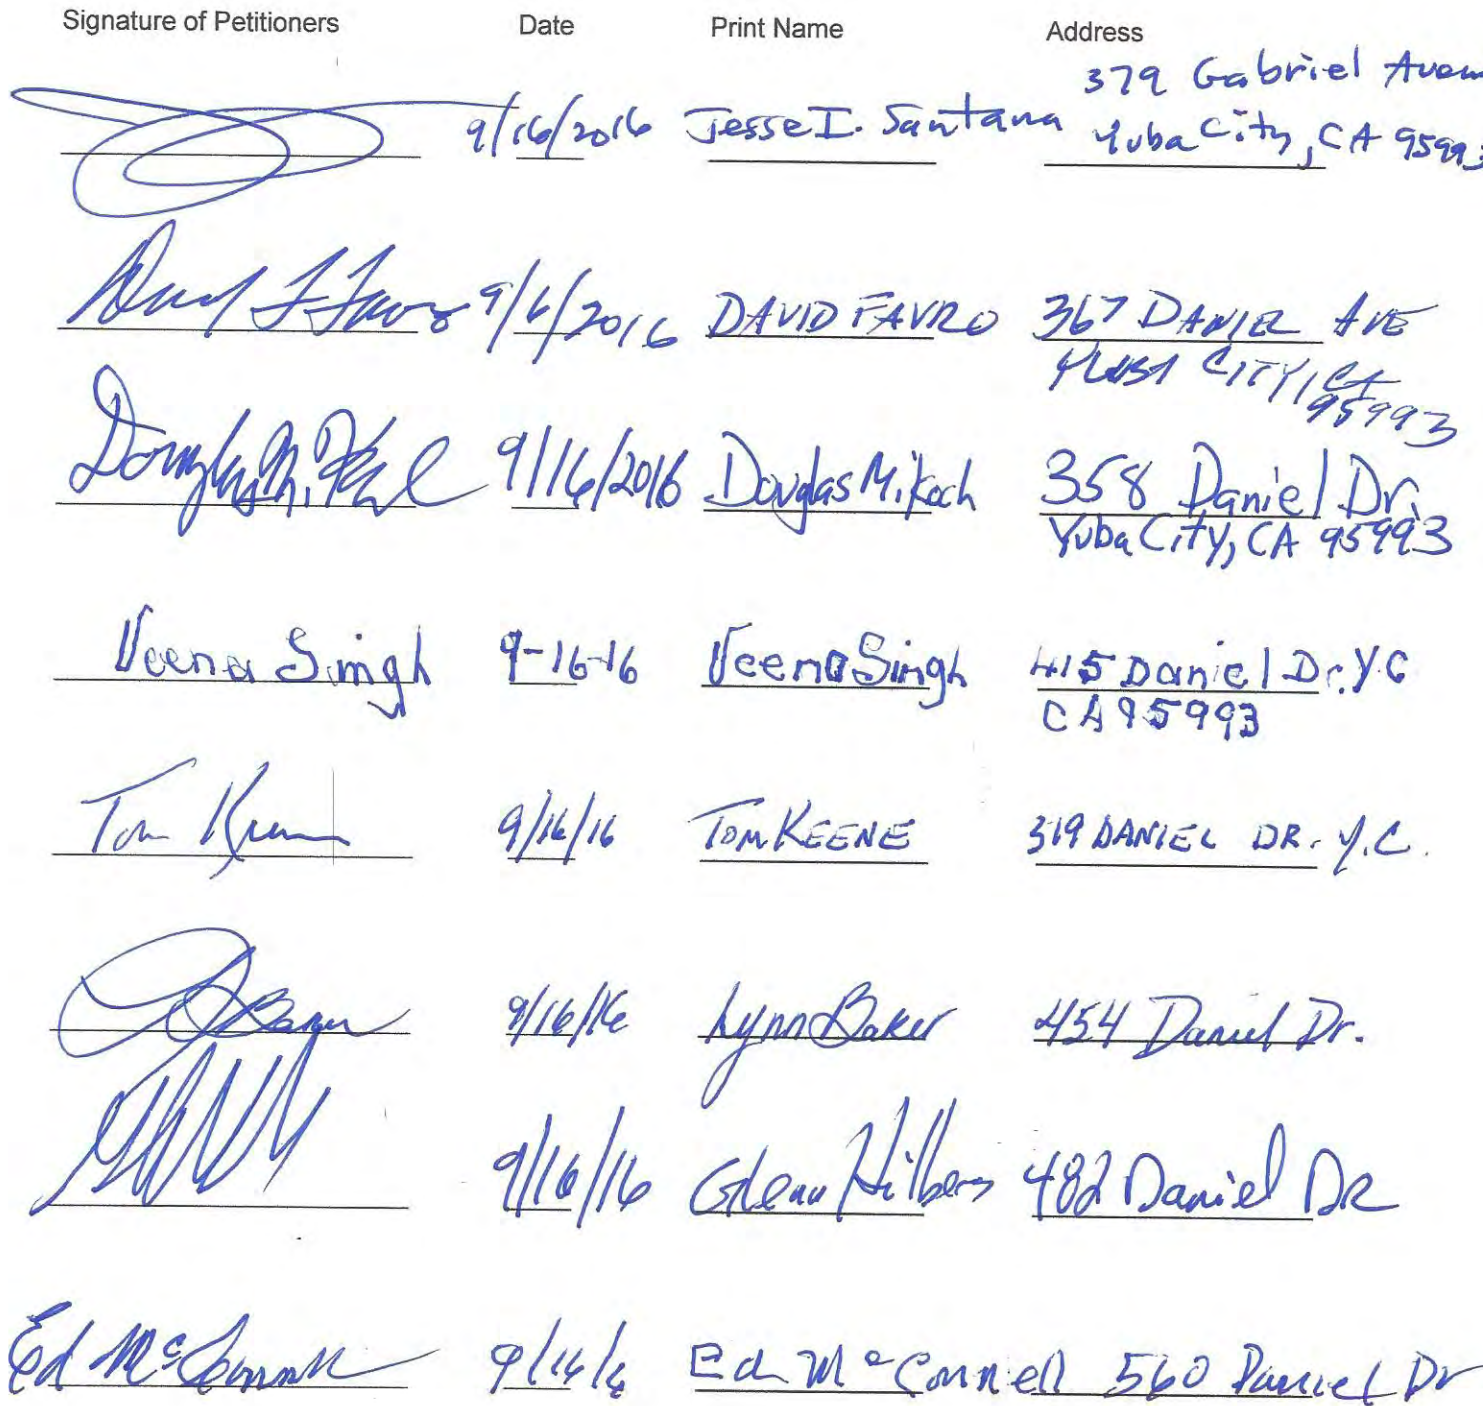 Signature of Petitioners Date Print Name Address
9/16/2016 Jesse I. Santana 379 Gabriel
Yuba City, CA 95993
9/6/2016 DAVID FAVRO 367 DANIEL AVE
CITY, CA
95993
9/16/2016 Douglas M. Koch 358 Daniel Dr.
Yuba City, CA 95993
Veena Singh 9-16-16 Veena Singh 415 Daniel Dr. Y.C
CA 95993
Tom 9/16/16 TOM KEENE 319 DANIEL DR. Y.C.
Baker 9/16/16 Lynn Baker 454 Daniel Dr.
9/16/16 Glenn Hilbers 482 Daniel DR
Ed McConnell 9/16/16 Ed McConnell 560 Daniel Dr